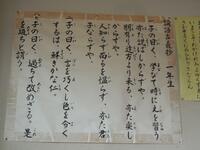 論語五義抄 一年生
一、子の曰く、学びて時に之を習う
亦た説ばしからずや。
朋有り遠方より来る、亦た楽し
からずや。
人知らず而うを慍らず、亦た君
子ならずや。
一、子の曰く、言を巧くし色を令く
するは、鮮きかな仁。
一、子の曰く、過ちて改めざる、是
を過ちと謂う。